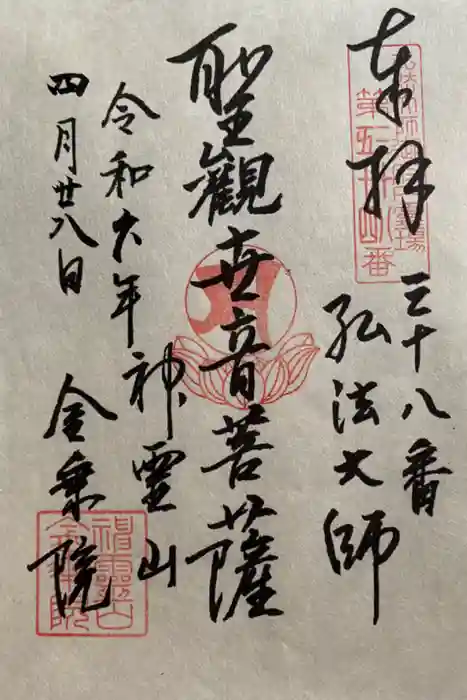 奉拝
第五十四番
三十八番
弘法大師
聖觀世音菩薩
令和六年
四月廿八日
神霊山
金乗院
神靈山